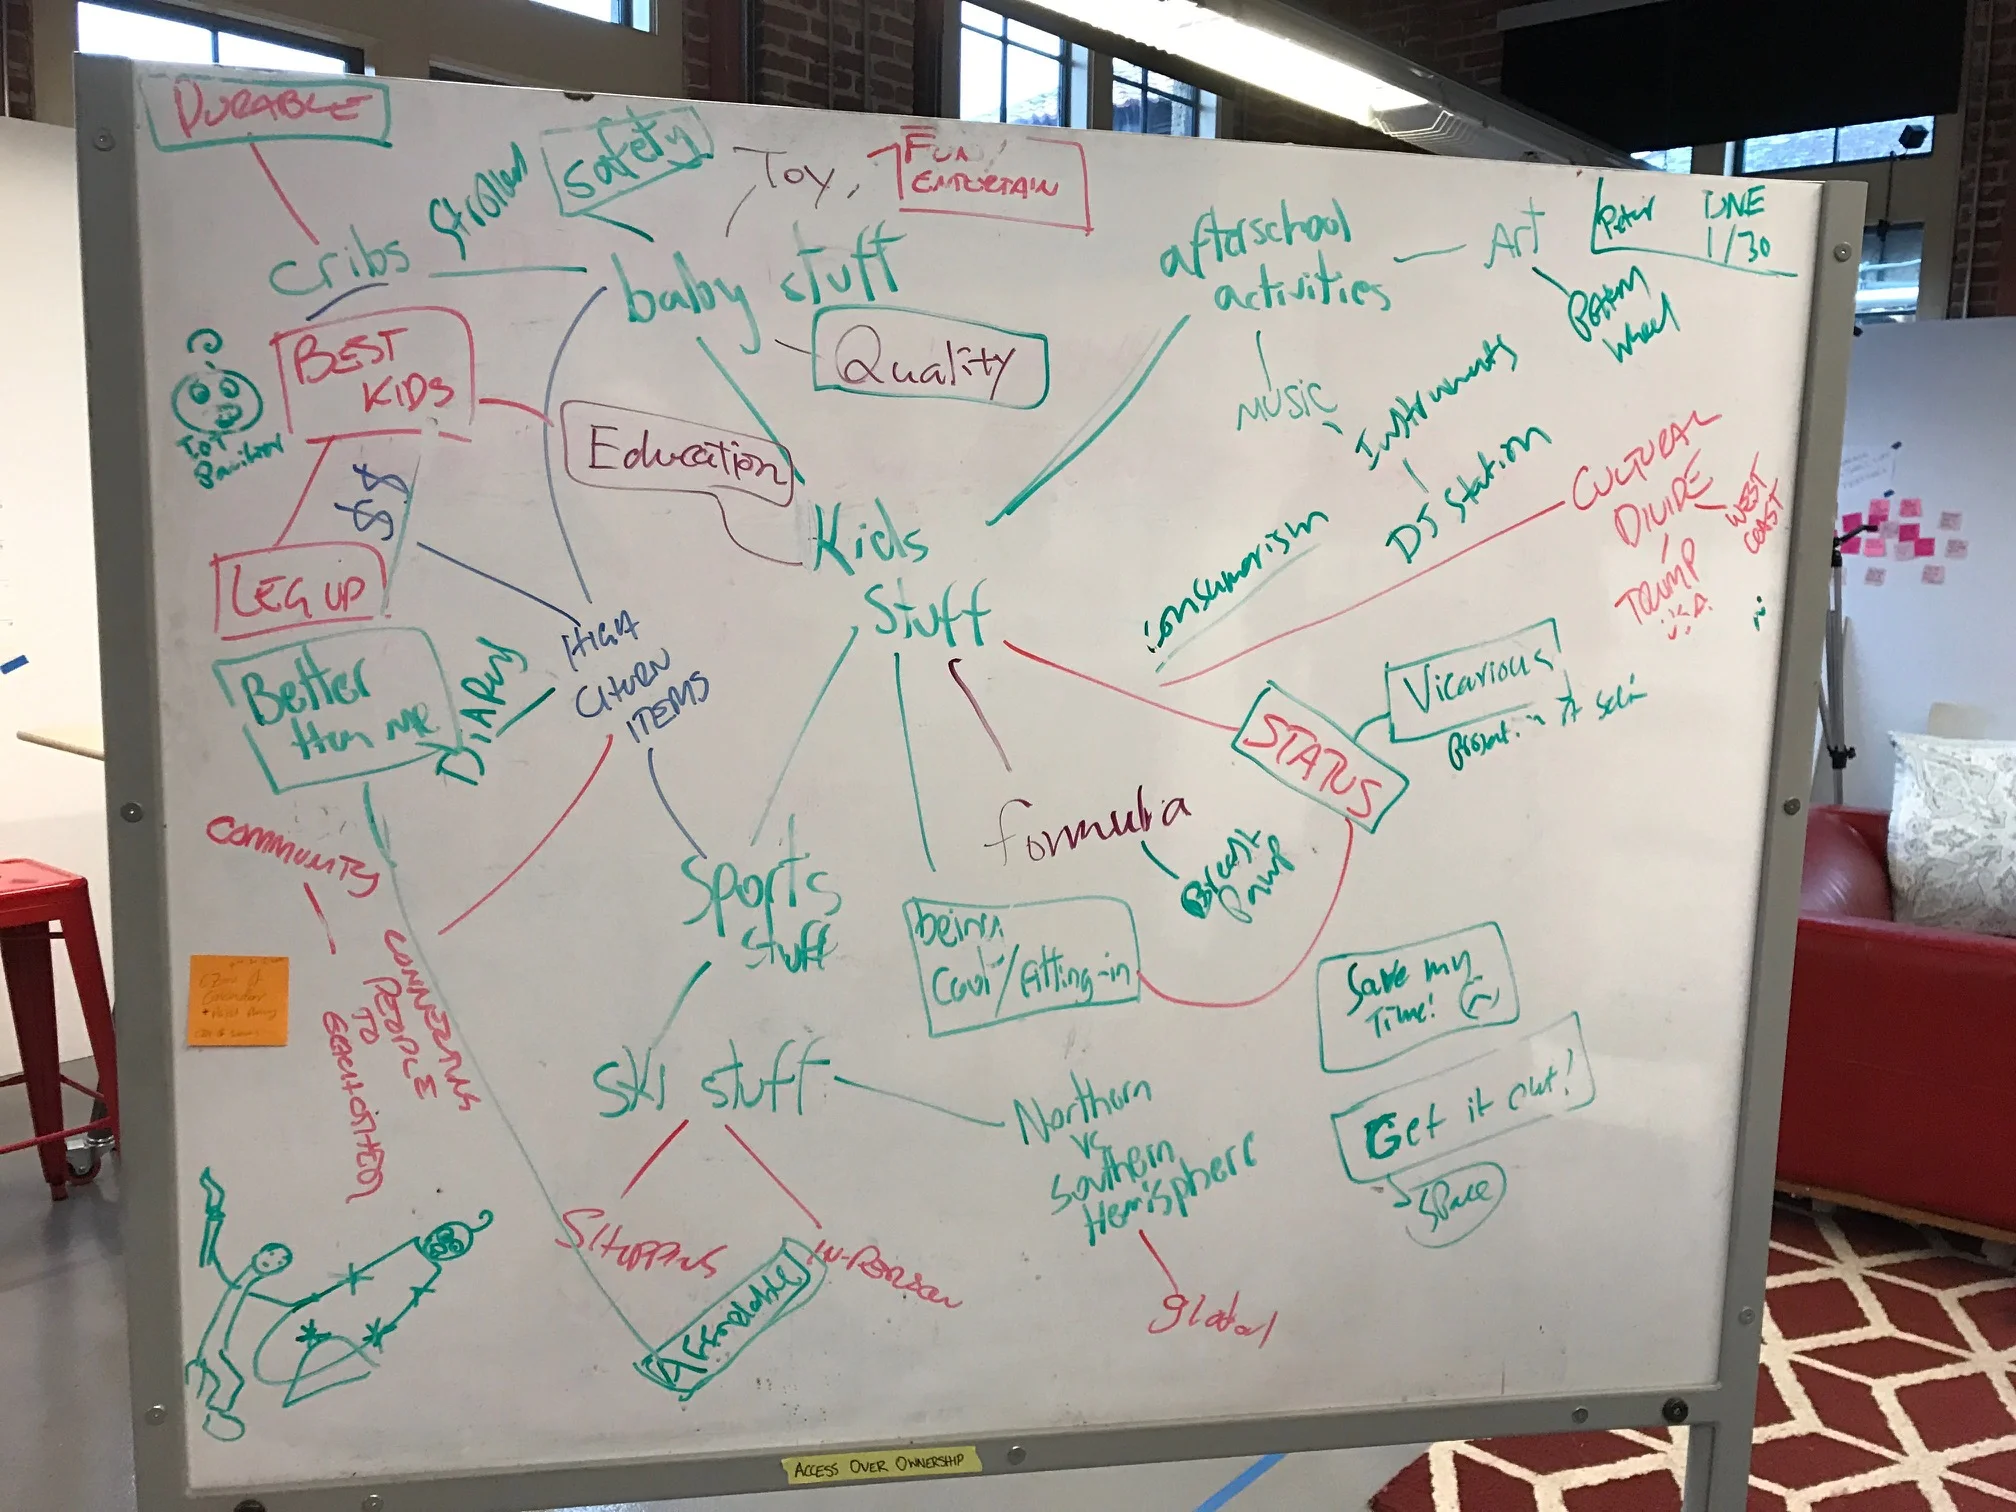 DURABLE
Safety
Toy,
FUN/
ENTERTAIN
cribs
baby stuff
afterschool
activities
Art
Peter
DNE
1/30
Pottery
Wheel
BEST
KIDS
Quality
IoT
Education
MUSIC
Instruments
DJ Station
$$
Kids
Stuff
consumerism
CULTURAL
DIVIDE
WEST
COAST
TRUMP
LEG UP
HIGH
CHURN
ITEMS
Better
than me
DIAPERS
STATUS
Vicarious
formula
Breast
Pump
COMMUNITY
CONNECTING
PEOPLE
TO
EACH OTHER
Sports
Stuff
being
Cool/fitting-in
Save my
Time!
Get it out!
Space
Ski stuff
Northern
vs
Southern
Hemisphere
SHIPPING
IN-PERSON
Affordable
global
ACCESS OVER OWNERSHIP